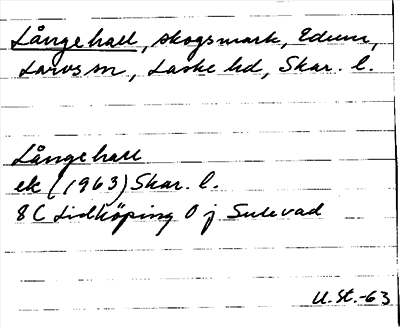 Långehall, skogsmark, Edum,
Larvs sn, Laske hd, Skar. l.
Långehall
ek (1963) Skar. l.
8C Lidköping 0 j Sulevad
U.St.-63